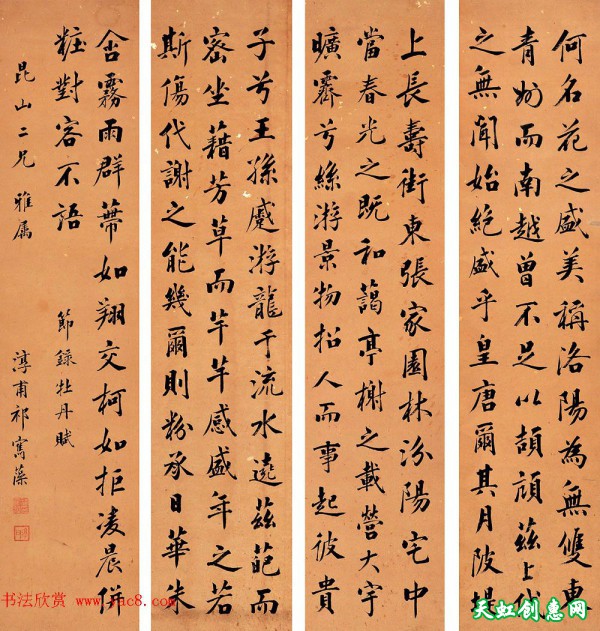 何名花之盛美稱洛陽為無雙東
青州而南越曾不足以頡頏茲上代
之無聞始絕盛乎皇唐爾其月陂堤
上長壽街東張家園林汾陽宅中
當春光之既和藹亭榭之載營大宇
曠霽兮絲游景物招人而事起彼貴
子兮王孫蹙游龍于流水遶茲葩而
密坐藉芳草而芊芊感盛年之若
斯傷代謝之能幾爾則粉承日華朱
含霧雨群蕚如翔交柯如拒凌晨併
粧對客不語
節錄牡丹賦
昆山二兄雅属
淳甫祁寯藻
书法欣赏 www.yac8.com
天虹创意网